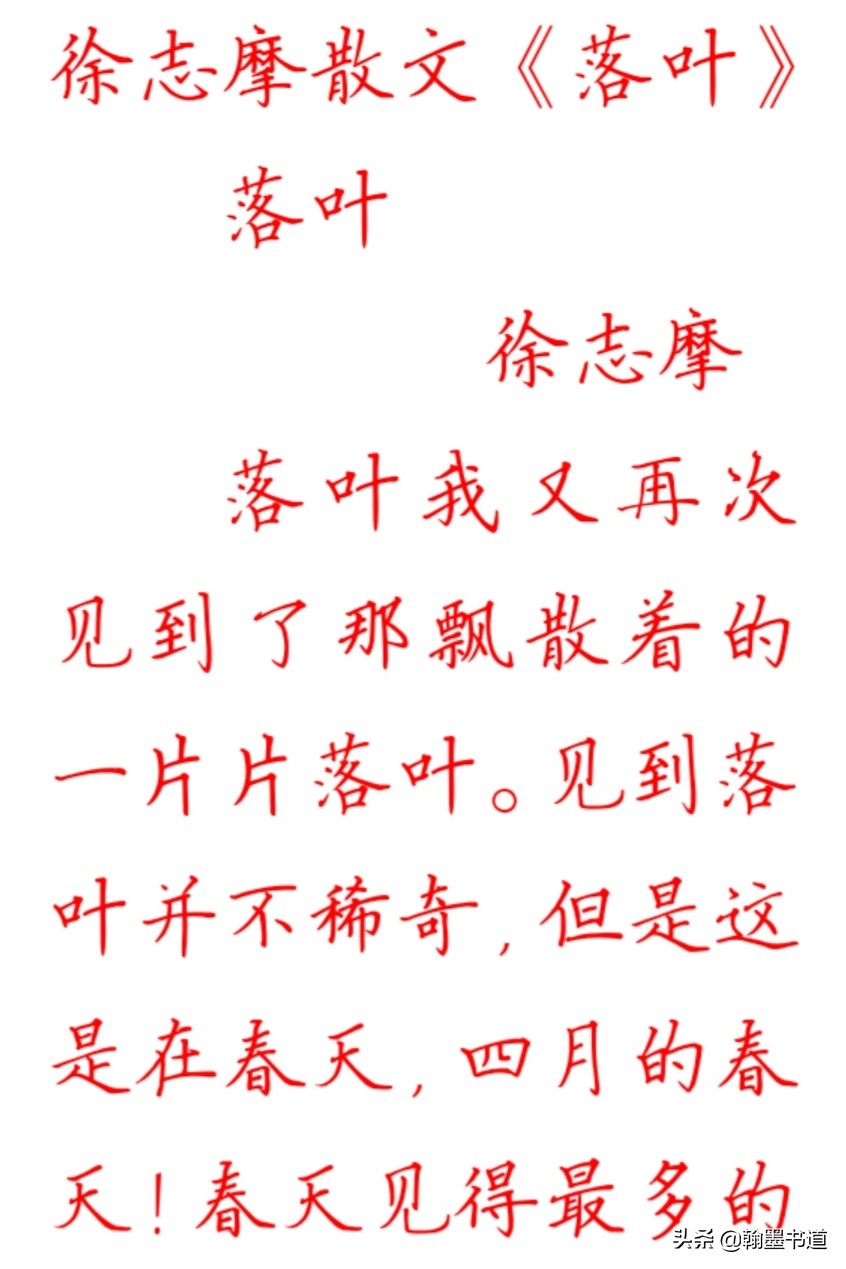 徐志摩散文《落叶》
落叶
徐志摩
落叶我又再次
见到了那飘散着的
一片片落叶。见到落
叶并不稀奇,但是这
是在春天,四月的春
天!春天见得最多的
头条 @翰墨书道